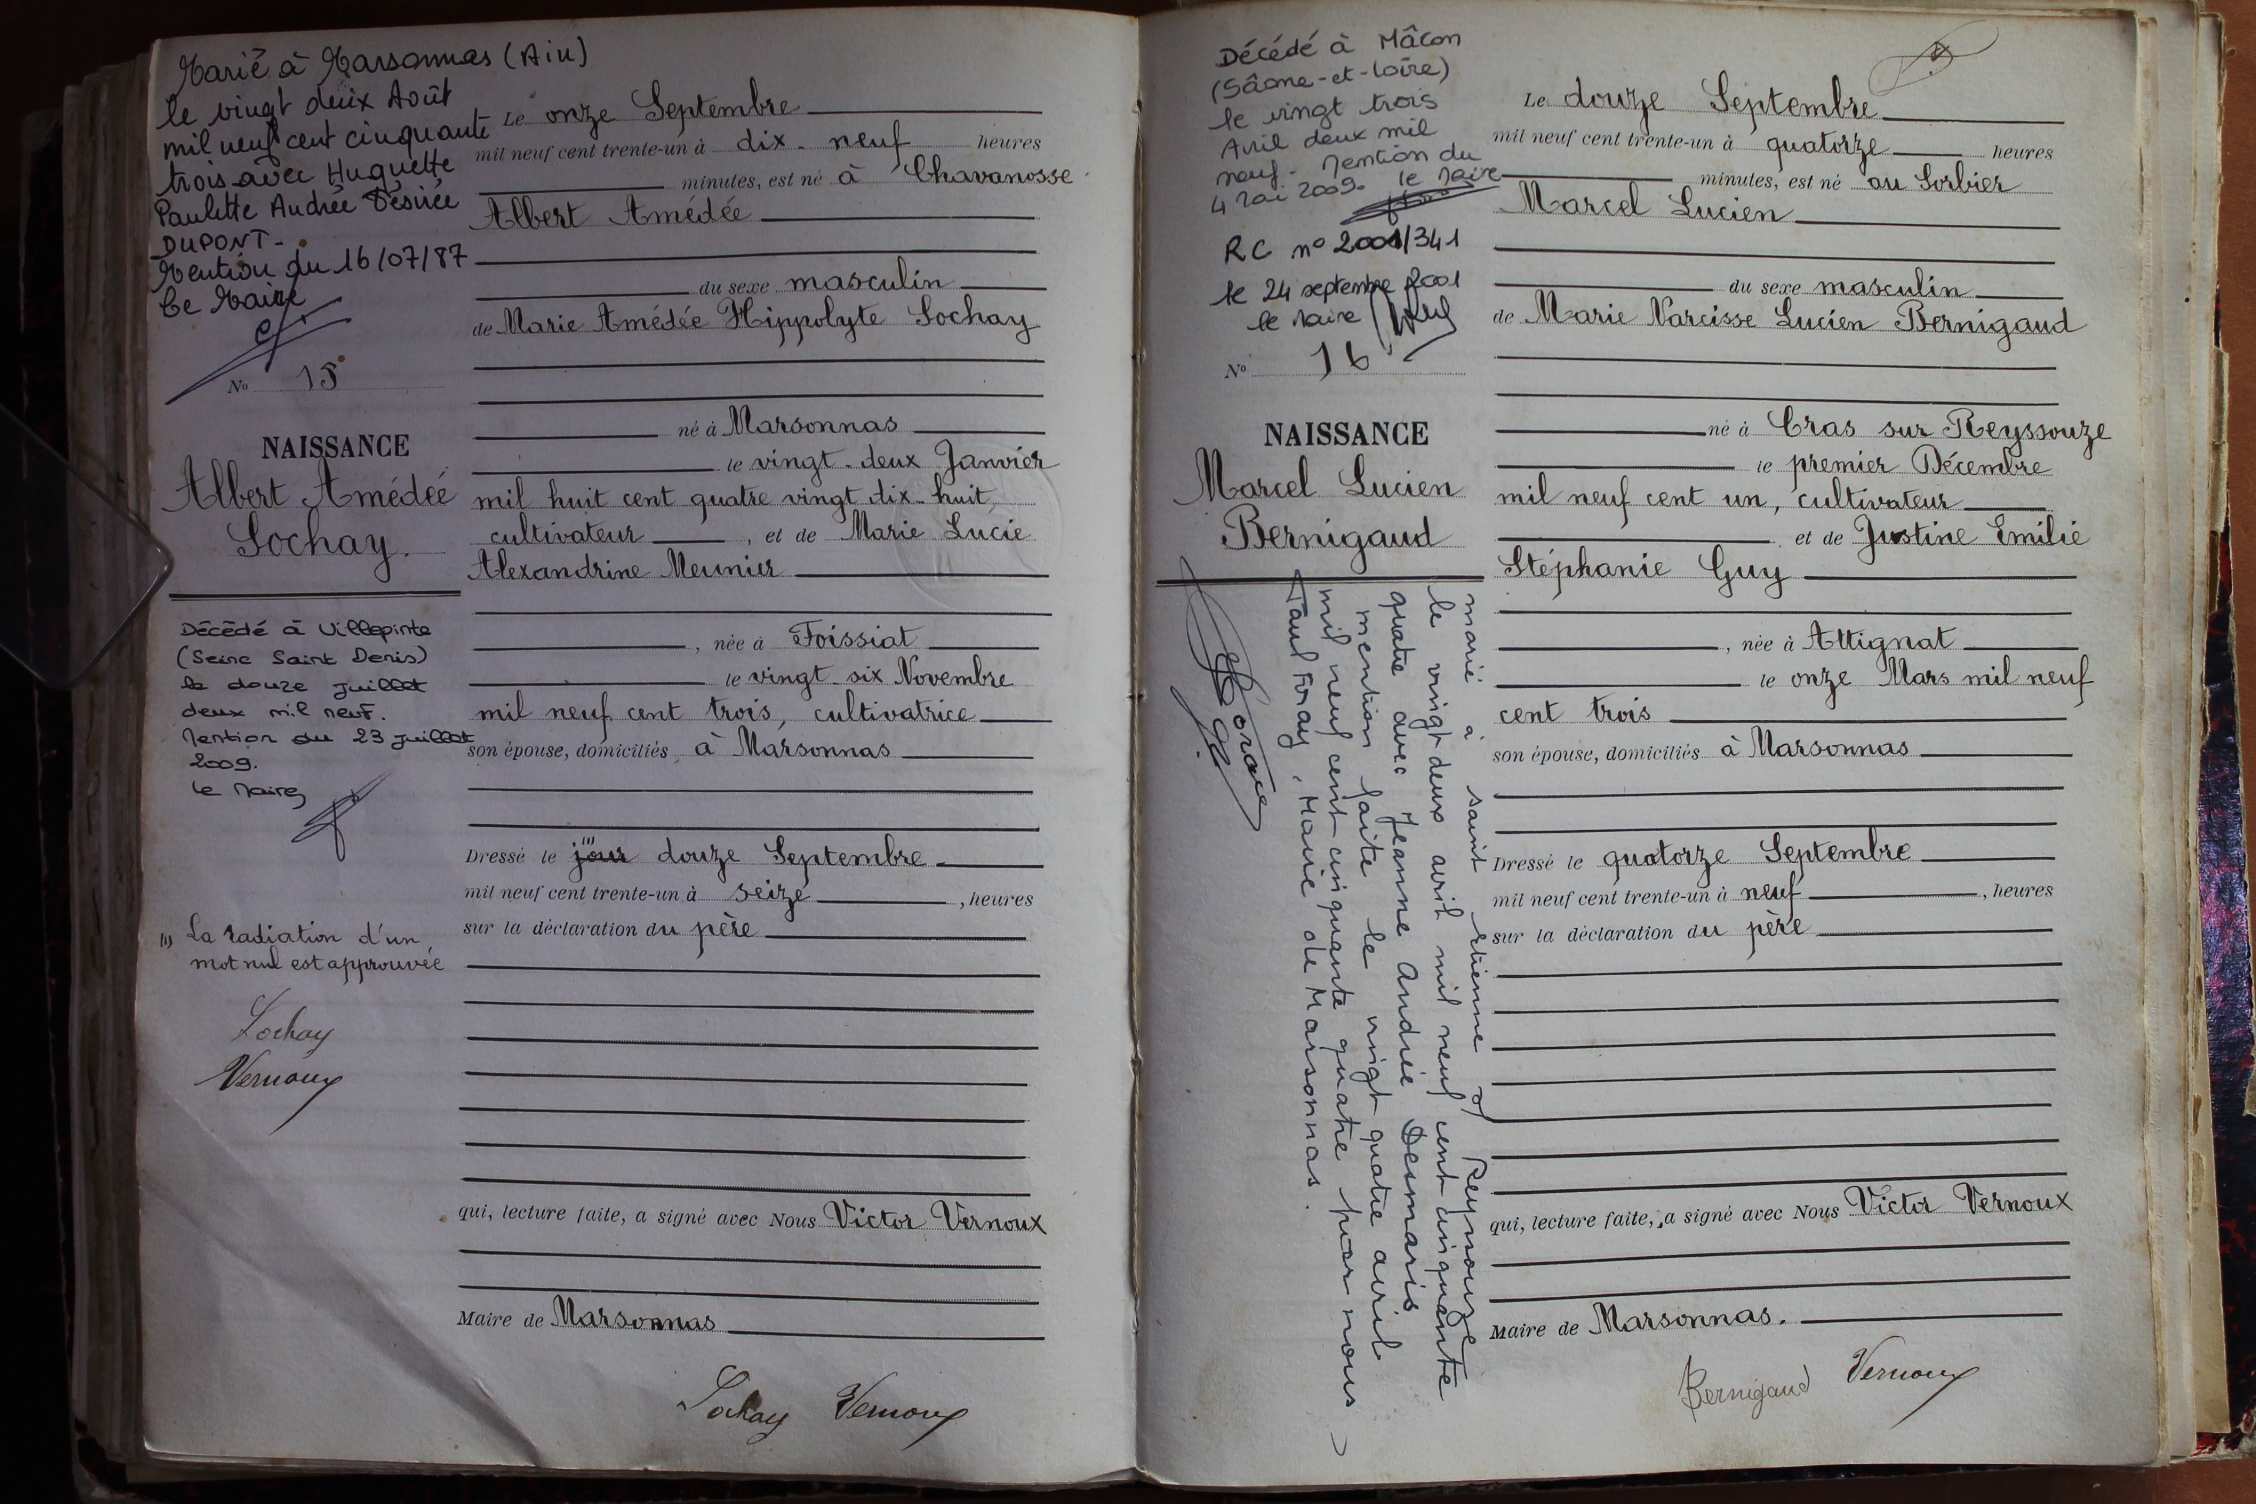 Marié à Marsonnas (Ain)
le vingt deux Août
mil neuf cent cinquante
trois avec Huguette
Paulette Andrée Désirée
DUPONT-
Mention du 16/07/87
Le Maire
No 15
NAISSANCE
Albert Amédée
Sochay.
Décédé à Villepinte
(Seine Saint Denis)
le douze juillet
deux mil neuf.
Mention du 23 juillet
2009.
Le Maire
(1) La radiation d'un
mot nul est approuvée
Sochay
Vernoux
Le onze Septembre
mil neuf cent trente-un à dix-neuf heures
minutes, est né à Chavanosse
Albert Amédée
du sexe masculin
de Marie Amédée Hippolyte Sochay
né à Marsonnas
le vingt-deux Janvier
mil huit cent quatre vingt dix-huit,
cultivateur, et de Marie Lucie
Alexandrine Meunier
, née à Foissiat
le vingt-six Novembre
mil neuf cent trois, cultivatrice
son épouse, domiciliés à Marsonnas
Dressé le jour (1) douze Septembre
mil neuf cent trente-un à seize, heures
sur la déclaration du père
qui, lecture faite, a signé avec Nous Victor Vernoux
Maire de Marsonnas
Sochay Vernoux
Décédé à Mâcon
(Saône-et-Loire)
le vingt trois
Avril deux mil
neuf. Mention du
4 Mai 2009. Le Maire
RC no 2001/341
le 24 septembre 2001
le Maire
No 16
NAISSANCE
Marcel Lucien
Bernigaud
marié à saint Etienne s/ Reyssouze
le vingt deux avril mil neuf cent cinquante
quatre avec Jeanne Andrée Desmaris
mention faite le vingt quatre avril
mil neuf cent cinquante quatre par nous
Paul Foray, Maire de Marsonnas.
Le douze Septembre
mil neuf cent trente-un à quatorze heures
minutes, est né au Sorbier
Marcel Lucien
du sexe masculin
de Marie Narcisse Lucien Bernigaud
né à Cras sur Reyssouze
le premier Décembre
mil neuf cent un, cultivateur
et de Justine Emilie
Stéphanie Guy
, née à Attignat
le onze Mars mil neuf
cent trois
son épouse, domiciliés à Marsonnas
Dressé le quatorze Septembre
mil neuf cent trente-un à neuf, heures
sur la déclaration du père
qui, lecture faite, a signé avec Nous Victor Vernoux
Maire de Marsonnas.
Bernigaud Vernoux